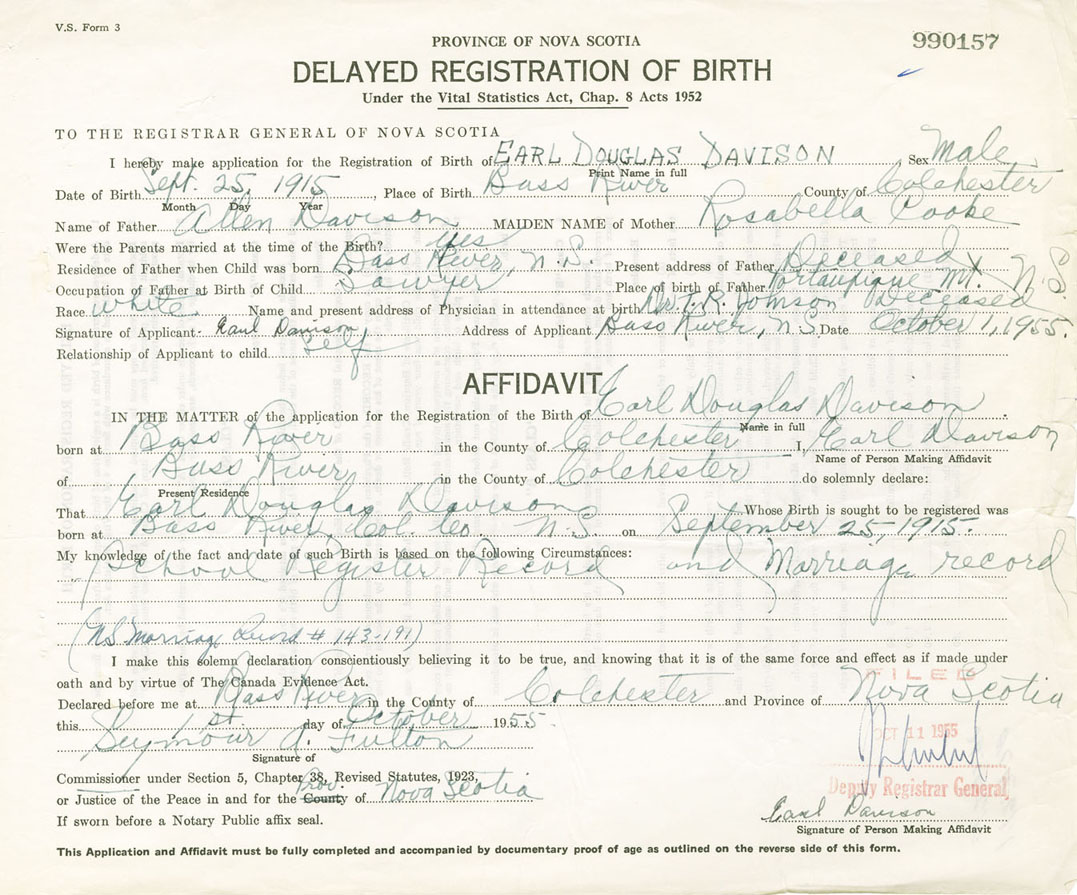 V.S. Form 3
PROVINCE OF NOVA SCOTIA
990157
DELAYED REGISTRATION OF BIRTH
Under the Vital Statistics Act, Chap. 8 Acts 1952
TO THE REGISTRAR GENERAL OF NOVA SCOTIA
I hereby make application for the Registration of Birth of EARL DOUGLAS DAVISON Sex Male
Print Name in full
Date of Birth Sept. 25, 1915, Place of Birth Bass River County of Colchester
Month Day Year
Name of Father Allen Davison MAIDEN NAME of Mother Rosabella Cooke
Were the Parents married at the time of the Birth? yes
Residence of Father when Child was born Bass River, N.S. Present address of Father Deceased
Occupation of Father at Birth of Child Sawyer Place of birth of Father Portaupique Mt. N.S.
Race White Name and present address of Physician in attendance at birth Dr. T. R. Johnson Deceased
Signature of Applicant Earl Davison Address of Applicant Bass River, N.S. Date October 1, 1955.
Relationship of Applicant to child Self
AFFIDAVIT
IN THE MATTER of the application for the Registration of the Birth of Earl Douglas Davison
Name in full
born at Bass River in the County of Colchester I, Earl Davison
Name of Person Making Affidavit
of Bass River in the County of Colchester do solemnly declare:
Present Residence
That Earl Douglas Davison Whose Birth is sought to be registered was
born at Bass River, Col. Co. N.S. on September 25, 1915.
My knowledge of the fact and date of such Birth is based on the following Circumstances:
School Register Record and Marriage record
(N.S. Marriage Record # 143-191)
I make this solemn declaration conscientiously believing it to be true, and knowing that it is of the same force and effect as if made under
oath and by virtue of The Canada Evidence Act.
Declared before me at Bass River in the County of Colchester and Province of Nova Scotia
FILED
this 1st day of October 1955.
OCT 11 1955
Seymour A. Fulton
Signature of
Commissioner under Section 5, Chapter 38, Revised Statutes, 1923,
Deputy Registrar General
Prov.
or Justice of the Peace in and for the County of Nova Scotia
Earl Davison
If sworn before a Notary Public affix seal.
Signature of Person Making Affidavit
This Application and Affidavit must be fully completed and accompanied by documentary proof of age as outlined on the reverse side of this form.